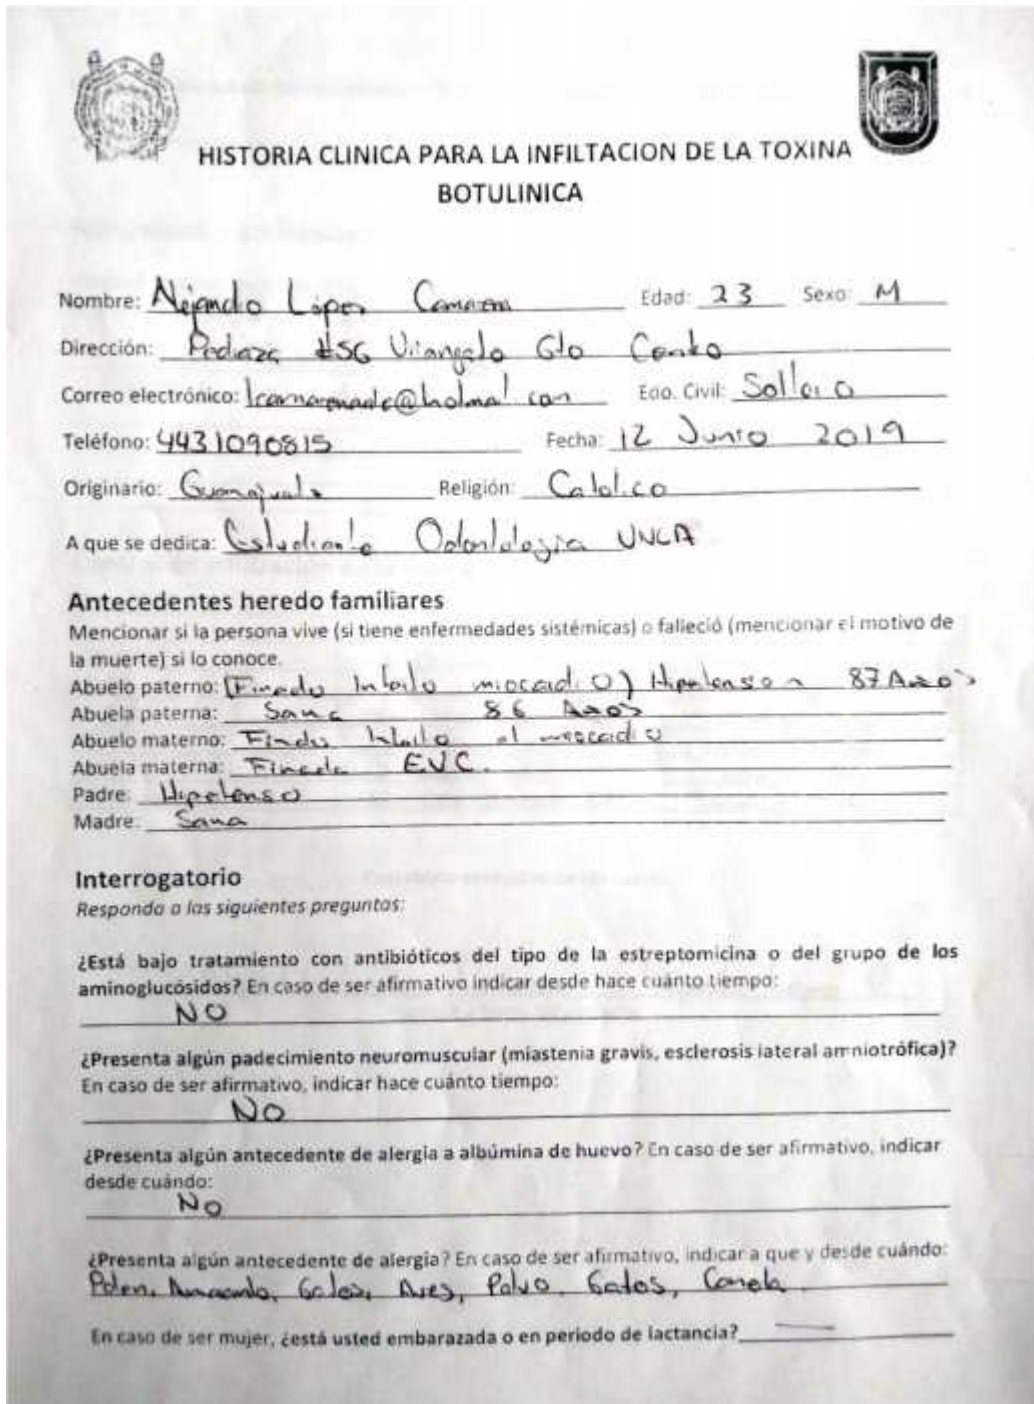 HISTORIA CLINICA PARA LA INFILTACION DE LA TOXINA
BOTULINICA
Nombre: Alejandro López Edad: 23 Sexo: M
Dirección: #56 Uriangato Gto Centro
Correo electrónico: Edo. Civil: Soltero
Teléfono: 4431090815 Fecha: 12 Junio 2019
Originario: Guanajuato Religión: Catolico
A que se dedica: Estudiante Odontologia
Antecedentes heredo familiares
Mencionar si la persona vive (si tiene enfermedades sistémicas) o falleció (mencionar el motivo de
la muerte) si lo conoce.
Abuelo paterno: (Finado Infarto miocardio) Hipotenso 87 Años
Abuela paterna: Sana 86 Años
Abuelo materno: Finado Infarto al miocardio
Abuela materna: Finada EVC.
Padre: Hipotenso
Madre: Sana
Interrogatorio
Responda a las siguientes preguntas:
¿Está bajo tratamiento con antibióticos del tipo de la estreptomicina o del grupo de los
aminoglucósidos? En caso de ser afirmativo indicar desde hace cuánto tiempo:
NO
¿Presenta algún padecimiento neuromuscular (miastenia gravis, esclerosis lateral amniotrófica)?
En caso de ser afirmativo, indicar hace cuánto tiempo:
NO
¿Presenta algún antecedente de alergia a albúmina de huevo? En caso de ser afirmativo, indicar
desde cuándo:
No
¿Presenta algún antecedente de alergia? En caso de ser afirmativo, indicar a que y desde cuándo:
Polen, Aves, Polvo, Gatos, Canela
En caso de ser mujer, ¿está usted embarazada o en periodo de lactancia?